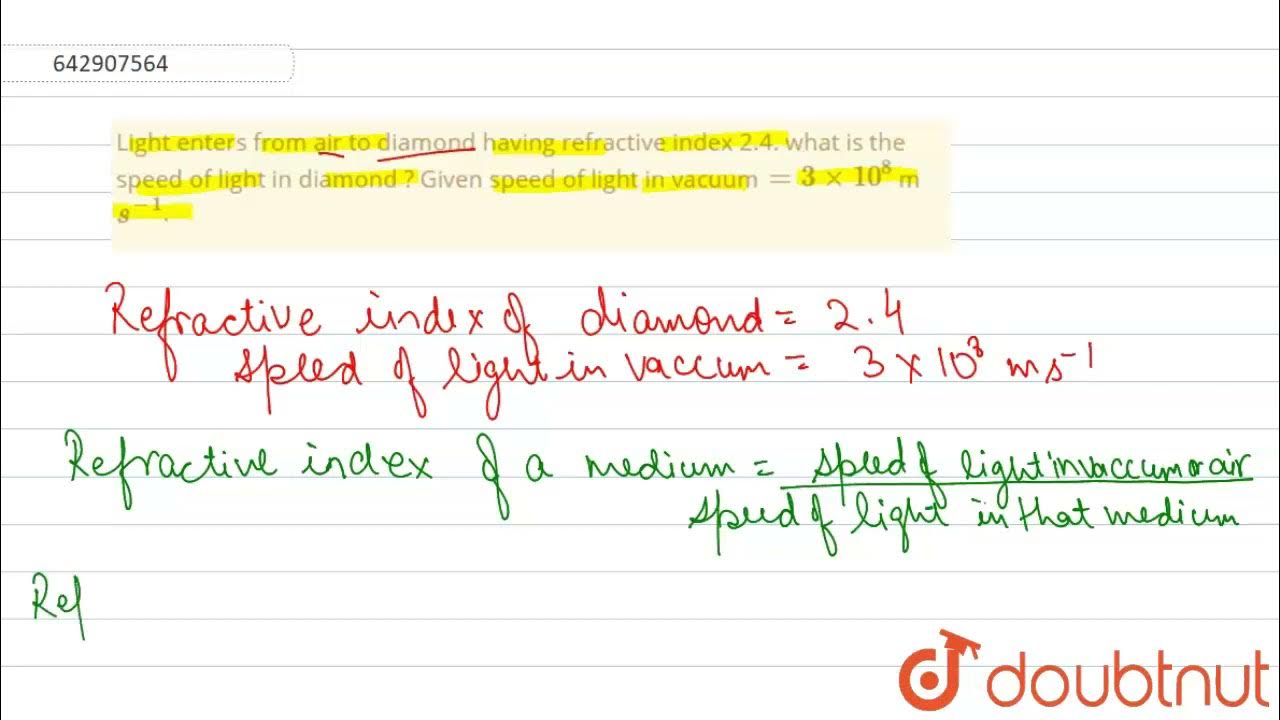 642907564
Light enters from air to diamond having refractive index 2.4. what is the
speed of light in diamond ? Given speed of light in vacuum = 3 × 10⁸ m
s⁻¹.
Refractive index of diamond = 2.4
speed of light in vaccum = 3 × 10⁸ ms⁻¹
Refractive index of a medium = speed of light in vaccum or air
speed of light in that medium
Ref
doubtnut